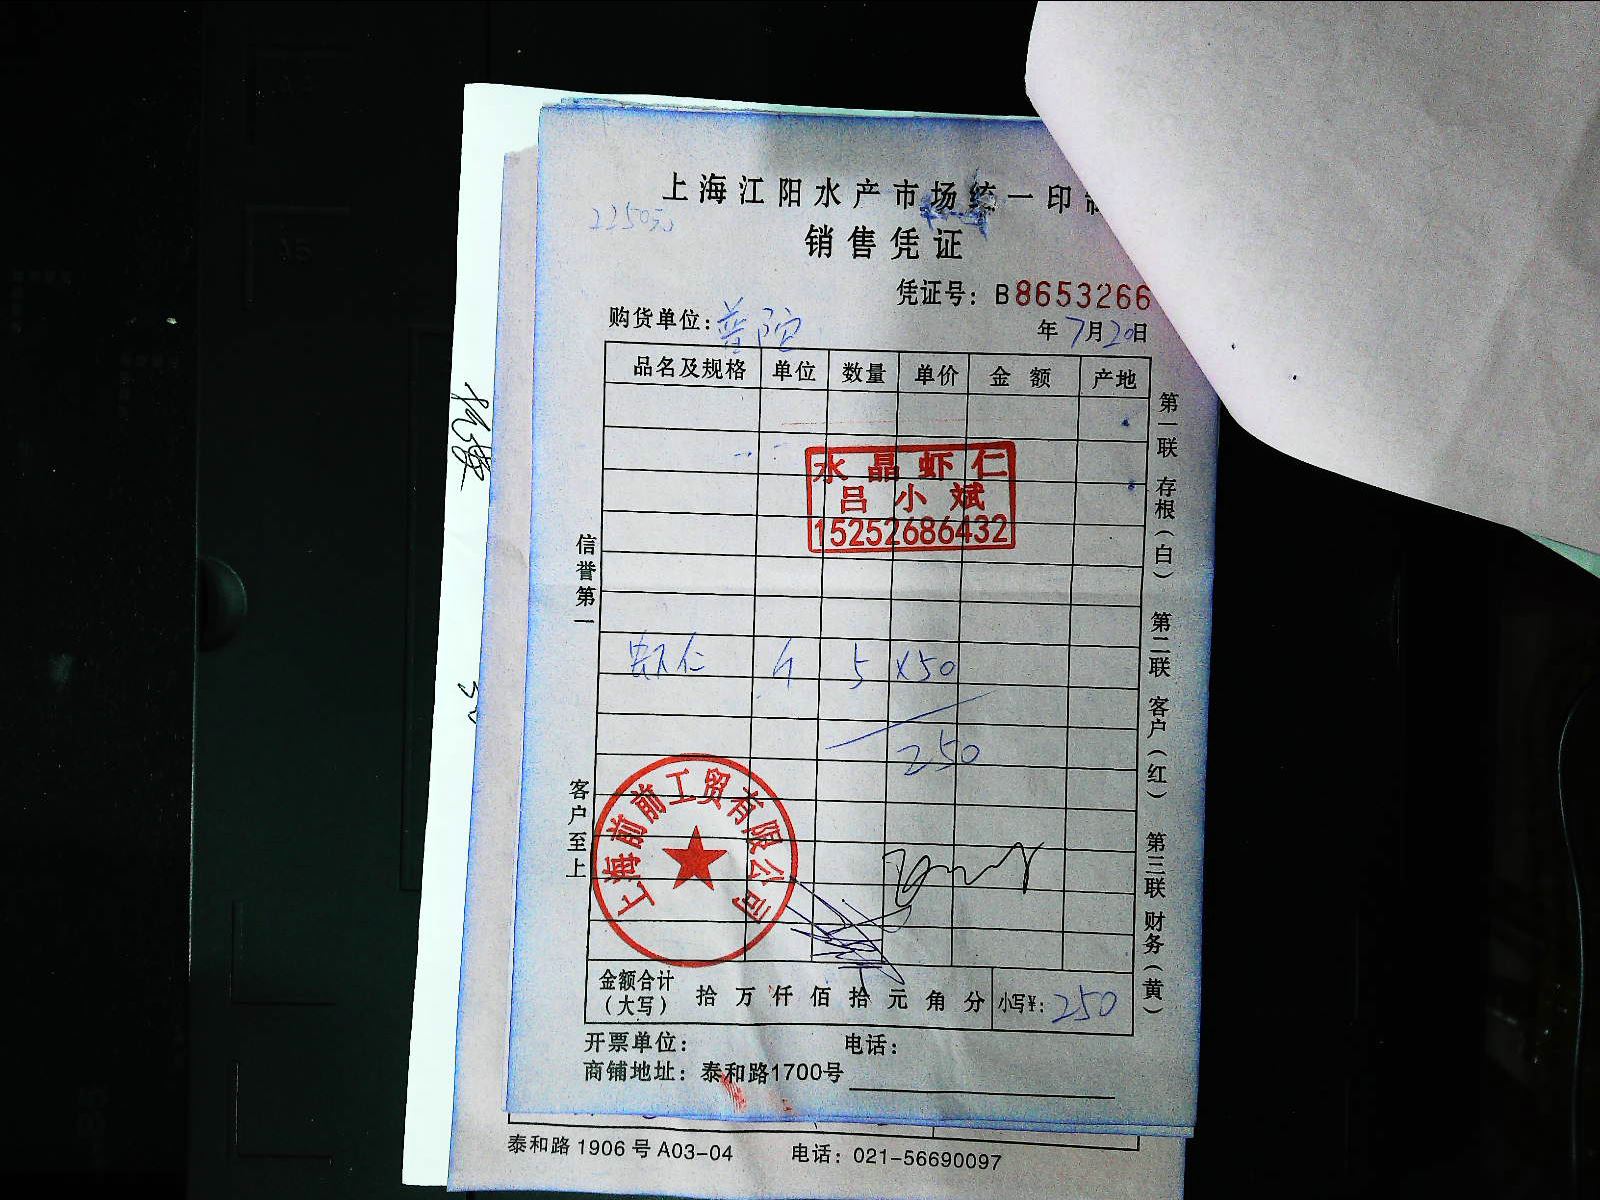 上海江阳水产市场统一印制
2250元
销售凭证
凭证号：B8653266
购货单位：普陀
年7月20日
品名及规格 单位 数量 单价 金额 产地
水晶虾仁
吕小斌
15252686432
虾仁 斤 5 x50
250
信誉第一
客户至上
第一联 存根（白） 第二联 客户（红） 第三联 财务（黄）
上海前前工贸有限公司
金额合计
（大写） 拾 万 仟 佰 拾 元 角 分 小写¥：250
开票单位： 电话：
商铺地址：泰和路1700号
泰和路1906号A03-04 电话：021-56690097